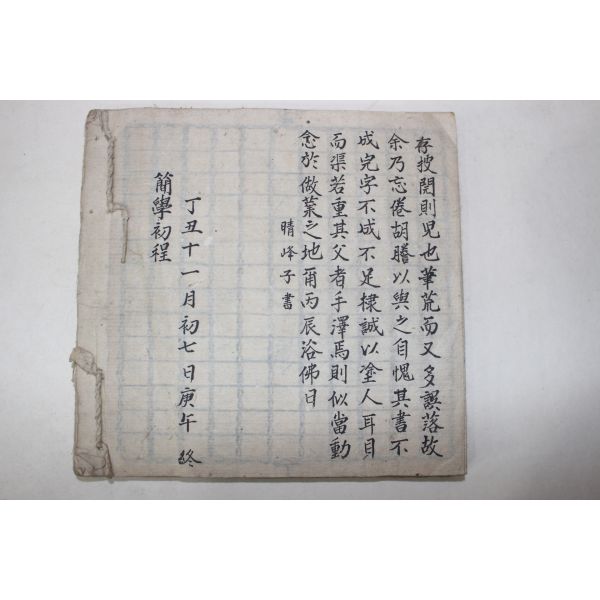 存拔閱則児也筆荒而又多誤落故
余乃忘倦胡謄以與之自愧其書不
成完字不成不足棣誠以塗人耳目
而渠若重其父者手澤焉則似當動
念於做業之地爾丙辰浴佛日
晴峰子書
丁丑十一月初七日庚午 終
簡學初程